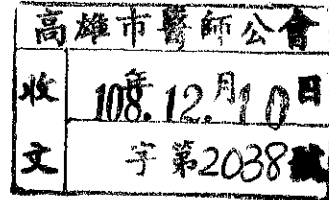 高雄市醫師公會
收文
108年.12.月10日
字第2038號